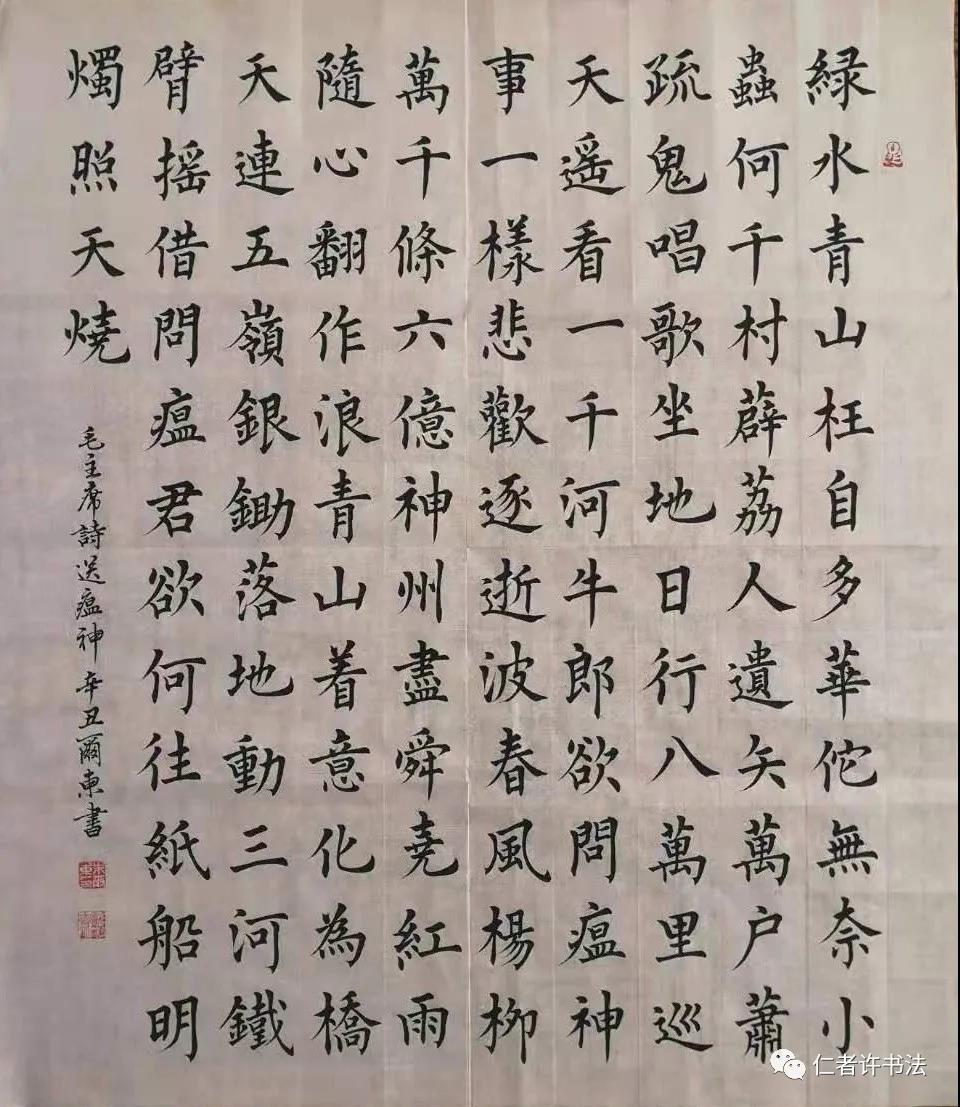 緑水青山枉自多華佗無奈小
蟲何千村薜荔人遺矢萬户蕭
疏鬼唱歌坐地日行八萬里巡
天遥看一千河牛郎欲問瘟神
事一樣悲歡逐逝波春風楊柳
萬千條六億神州盡舜堯紅雨
隨心翻作浪青山着意化為橋
天連五嶺銀鋤落地動三河鐵
臂摇借問瘟君欲何往紙船明
燭照天燒
毛主席詩送瘟神辛丑爾東書
仁者许书法